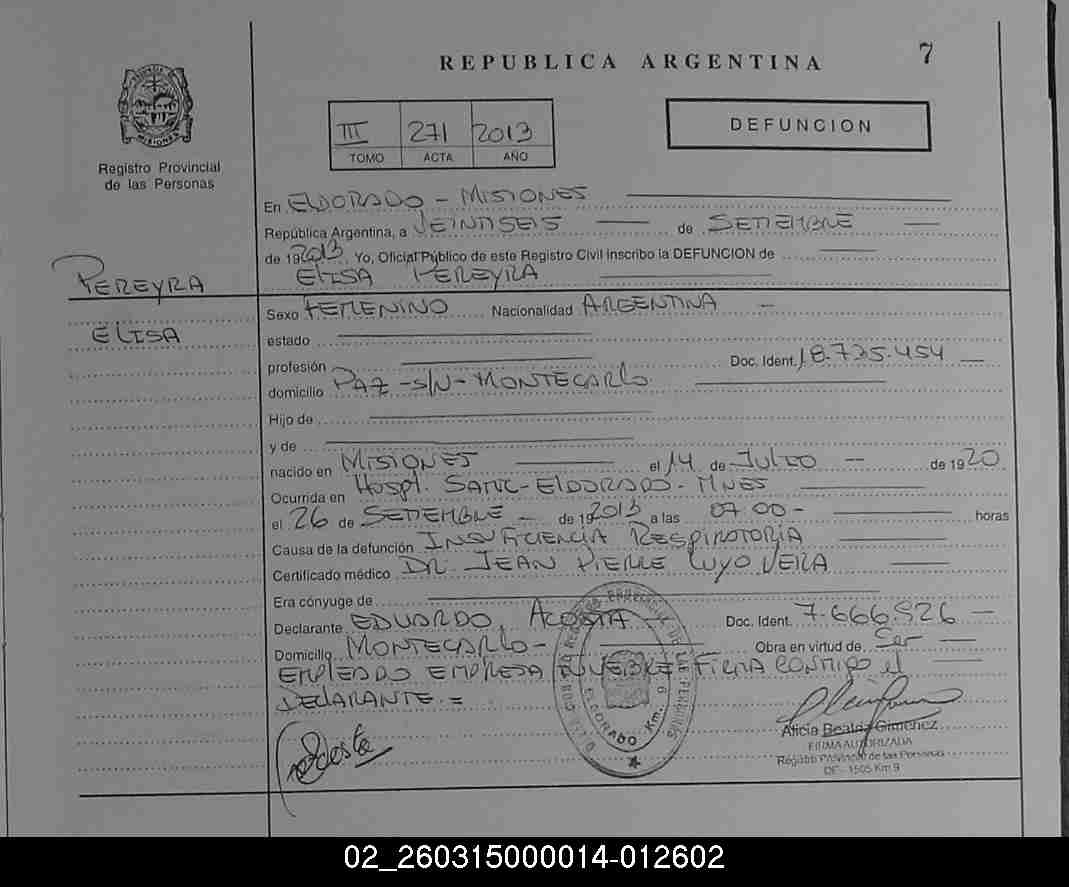 REPUBLICA ARGENTINA
7
III 271 2013
TOMO ACTA AÑO
DEFUNCION
Registro Provincial
de las Personas
En ELDORADO - MISIONES
República Argentina, a VEINTISEIS de SETIEMBRE
de 19 2013 Yo, Oficial Público de este Registro Civil inscribo la DEFUNCION de
ELISA PEREYRA
PEREYRA
ELISA
Sexo FEMENINO Nacionalidad ARGENTINA
estado
profesión Doc. Ident. 18.725.454
domicilio PAZ - S/N - MONTECARLO
Hijo de
y de
nacido en MISIONES el 14 de JULIO de 1920
Ocurrida en HOSPT. SAMIC - ELDORADO - MNES
el 26 de SETIEMBRE de 19 2013 a las 07 00 - horas
Causa de la defunción INSUFICIENCIA RESPIRATORIA
Certificado médico DR. JEAN PIERRE LUYO VERA
Era cónyuge de
Declarante EDUARDO, ACOSTA Doc. Ident. 7.666.926
Domicilio MONTECARLO - Obra en virtud de Ser
EMPLEADO EMPRESA FUNEBRE = FIRMA CONMIGO el
DECLARANTE. =
ELDORADO Km. 9
Alicia Beatriz Gimenez
FIRMA AUTORIZADA
Registro Provincial de las Personas
DE- 1505 Km 9
02_260315000014-012602